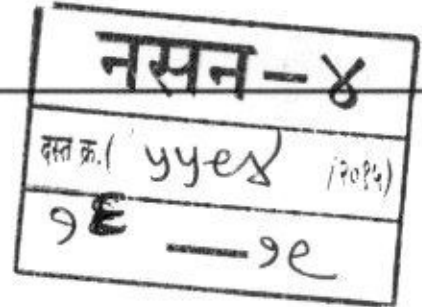 नसन - ४
दस्त क्र. ( ५५९४ /२०१५)
१६ — १९